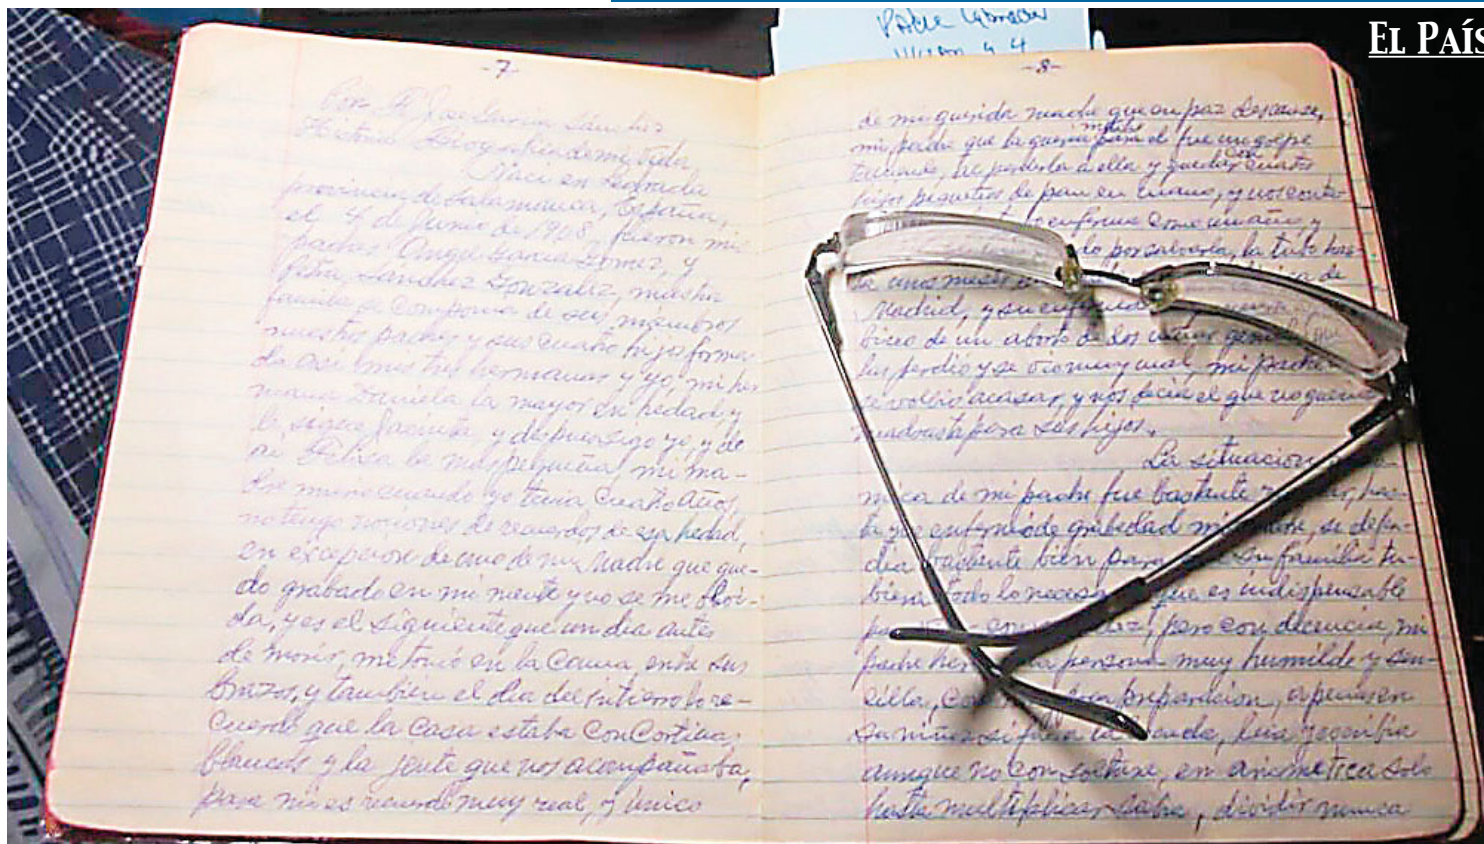 EL PAÍS
-7-
Por F José García Sánchez
Historia Biografia de mi Vida
Naci en Ledrada
provincia de Salamanca, España,
el 4 de Junio de 1908, fueron mis
padres Angel Garcia Gomez, y
Sanchez Gonzalez, nuestra
familia se componia de seis miembros
nuestros padres y sus cuatro hijos forma-
da asi mis tres hermanas y yo, mi her
mana Daniela la mayor en hedad, y
le sigue Jacinta, y despues sigo yo, y de
mi Felisa la mas pequeña, mi ma-
dre murio cuando yo tenia cuatro años,
no tengo nociones de recuerdos de esa hedad,
en de uno de mi Madre que que-
do grabado en mi mente y no se me olvi-
da, y es el siguiente que un dia antes
de morir, me tomó en la Cama, entre sus
brazos, y tambien el dia del intierro lo re-
cuerdo que la Casa estaba Con Cortinas
blancas y la jente que nos acompañaba,
para mi es recuerdo muy real, y único
-8-
de mi querida madre que en paz descanse,
mi padre que la queria mucho para el fue un golpe
tremendo, el perderla a ella y quedar con cuatro
hijos pequeños de pan en mano, y nos conta-
enferma como un año, y
por salvarla, la tubo has-
ta unos meses de
Madrid, y su
bino de un aborto de dos
los perdió y se vio muy mal, mi padre
se volbio acasar, y nos decia el que no queria
madrasta para sus hijos.
La situación
mica de mi padre fue bastante has-
ta que enfermó de grabedad mi madre, se defen-
dia bastante bien para su familia tu-
biera todo lo necesario que es indispensable
pero con decencia, mi
padre persona muy humilde y sen-
cilla, preparacion, apenas en
su niñes si fue a la escuela, leia y escribia
aunque no con soltura, en aricmetica solo
hasta multiplicar sabia, dividir nunca